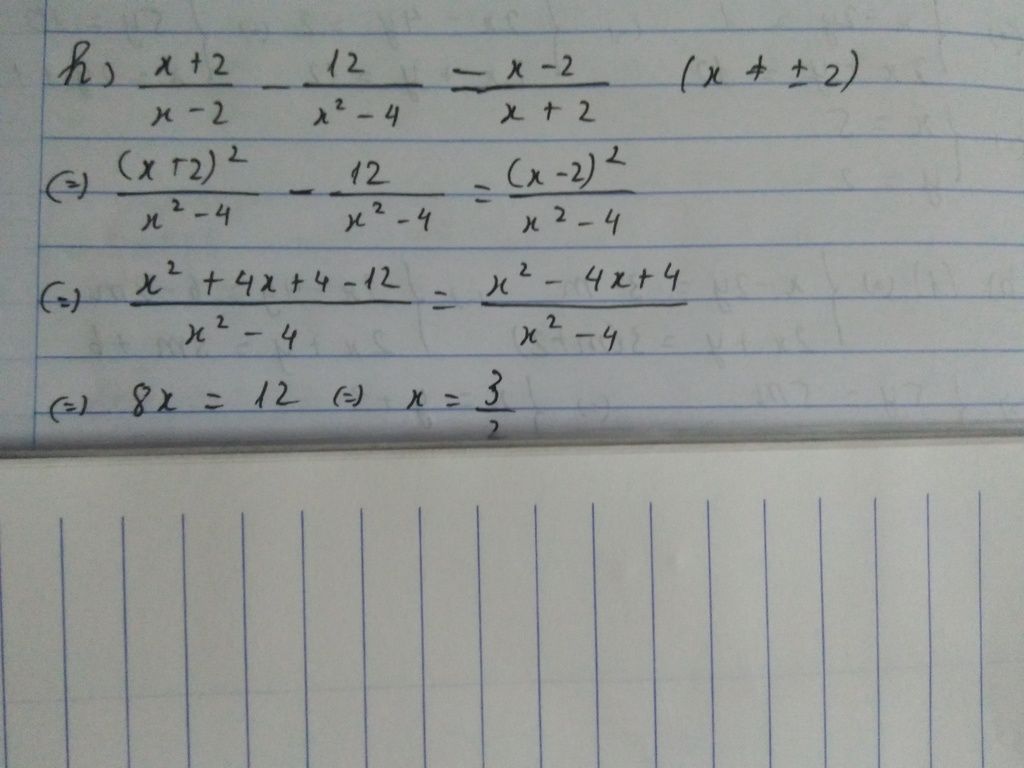 h) \frac{x+2}{x-2} - \frac{12}{x^2-4} = \frac{x-2}{x+2} (x ≠ ± 2)
(=) \frac{(x+2)^2}{x^2-4} - \frac{12}{x^2-4} = \frac{(x-2)^2}{x^2-4}
(=) \frac{x^2+4x+4-12}{x^2-4} = \frac{x^2-4x+4}{x^2-4}
(=) 8x = 12 (=) x = \frac{3}{2}